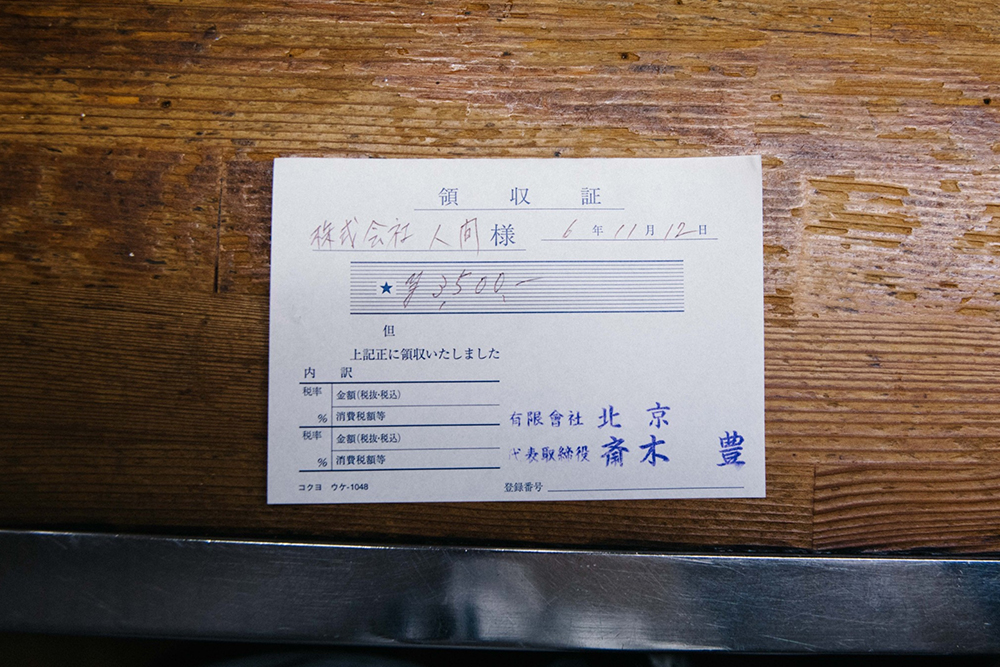 領収証
株式会社 人間 様 6年11月12日
★ ¥3,500,-
但
上記正に領収いたしました
内訳
税率 金額(税抜・税込)
% 消費税額等
税率 金額(税抜・税込)
% 消費税額等
有限會社 北京
代表取締役 斎木 豊
コクヨ ウケ-1048 登録番号